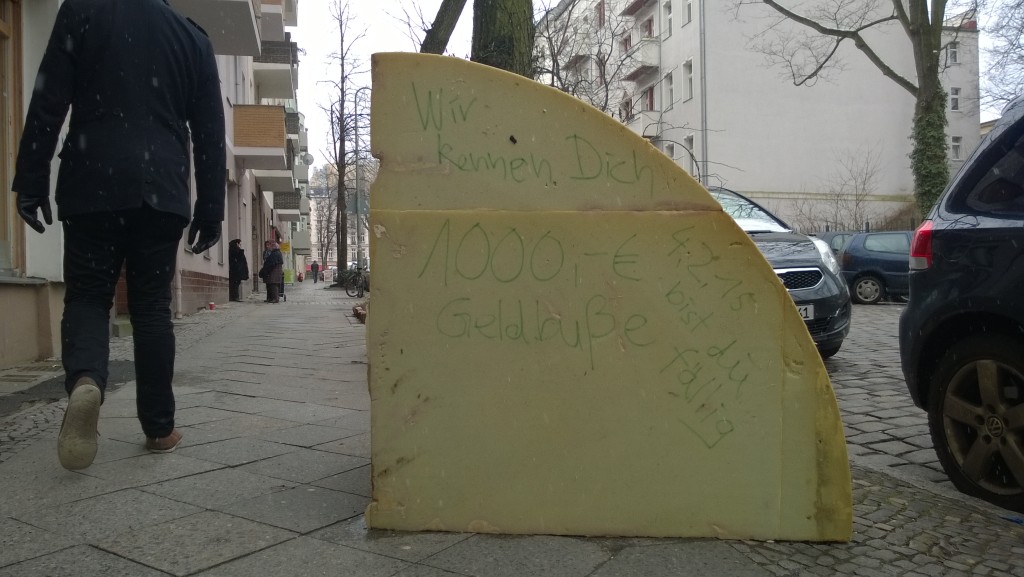 Wir
kennen Dich
1000,-€
Geldbuße
4.2.15
bist du
fällig